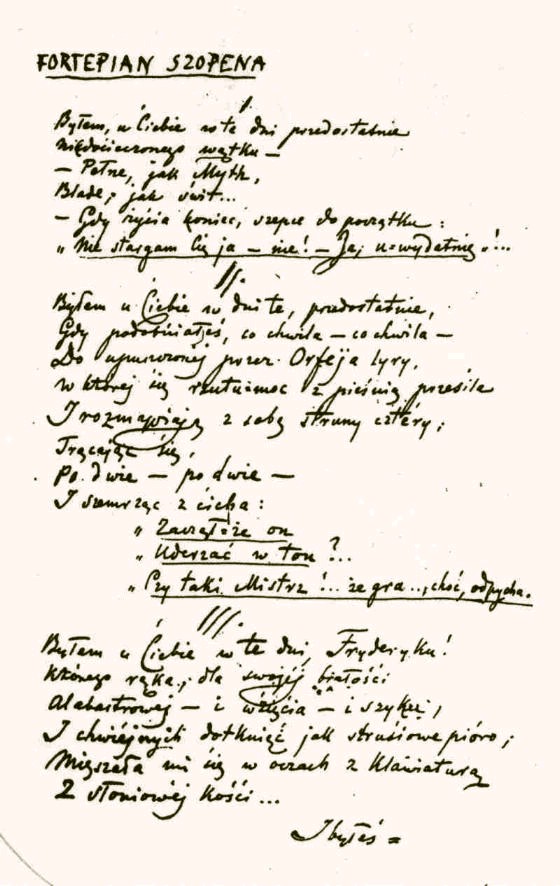 FORTEPIAN SZOPENA
I.
Byłem u Ciebie w te dni przedostatnie
Niedocieczonego wątku —
— Pełne, jak Myth,
Blade, jak świt...
— Gdy życia koniec, szepce do początku:
„Nie stargam Cię ja — nie! — Ja, u-wydatnię"!...
II.
Byłem u Ciebie w dni te, przedostatnie,
Gdy podobniałeś, co chwila — co chwila —
Do upuszczonej przez Orfeja lyry,
W której się rzutu-moc z pieśnią przesila
I rozmawiają z sobą struny cztéry;
Trącając się,
Po dwie — po dwie —
I szemrząc z cicha:
„Zacząłże on
„Uderzać w ton?...
„Czy taki Mistrz!... że gra..., choć, odpycha.
III.
Byłem u Ciebie w te dni, Fryderyku!
Którego ręka, dla swojéj białości
Alabastrowéj — i wzięcia — i szyku,
I chwiejnych dotknięć jak strusiowe pióro;
Mięszała mi się w oczach z klawiaturą
Z słoniowéj kości...
I byłeś =